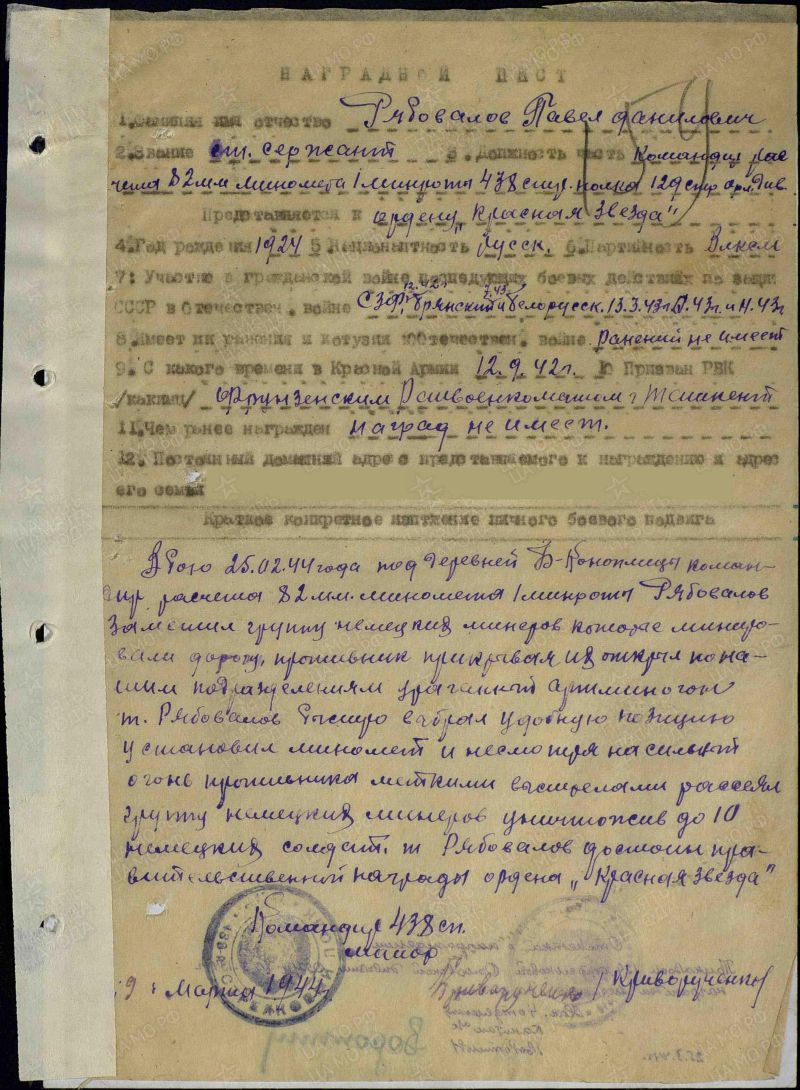 НАГРАДНОЙ ЛИСТ
1. Фамилия имя отчество Рябовалов Павел Данилович
2. Звание ст. сержант 3. Должность часть Командир рас
чета 82 мм миномета 1 минроты 438 стр. полка 129 стр. орл. див.
Представляется к ордену „Красная Звезда"
4. Год рождения 1924 5. Национальность Русск. 6. Партийность Влксм
7: Участие в гражданской войне последующих боевых действиях по защи
СССР в отечествен. войне СЗФ, Брянский и Белорусск. 13.3.43г.
8. Имеет ли ранения и контузии в отечествен. войне Ранений не имеет
9. С какого времени в Красной Армии 12.9.42г. 10 Призван РВК
/каким/ Фрунзенским Райвоенкоматом г Ташкент
11. Чем ранее награжден наград не имеет.
12. Постоянный домашний адрес представляемого к награждению и адрес
его семьи
Краткое конкретное изложение личного боевого подвига
В бою 25.02.44 года под деревней Б-Коноплицы коман-
дир расчета 82 мм. миномета 1 минроты Рябовалов
заметил группу немецких минеров которые миниро-
вали дорогу, противник прикрывая их открыл по на-
шим подразделениям ураганный артминогонь
т. Рябовалов быстро выбрал удобную позицию
установил миномет и несмотря на сильный
огонь противника меткими выстрелами рассеял
группу немецких минеров уничтожив до 10
немецких солдат. т Рябовалов достоин пра-
вительственной награды ордена „Красная Звезда"
Командир 438 сп.
майор
/ Криворученко /
9 Марта 1944г